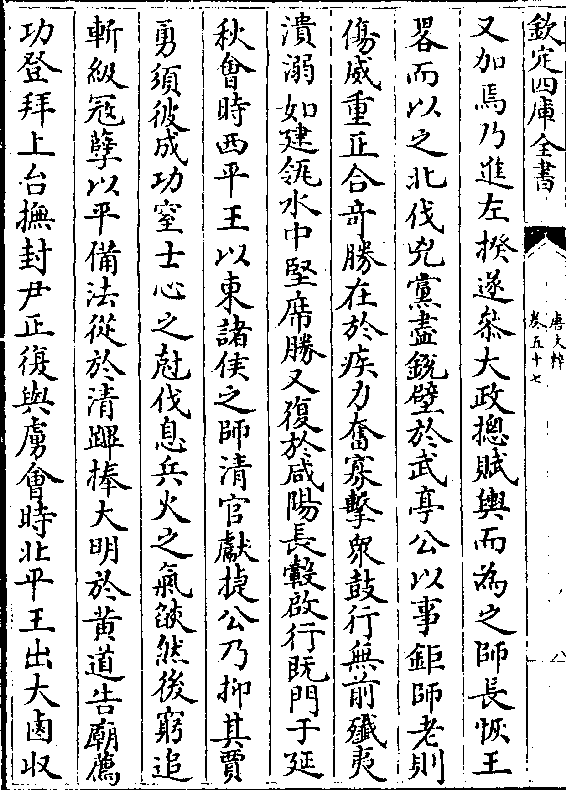 欽定四庫全書
唐文粹
卷五十七
八
又加焉乃進左揆遂叅大政摠賦輿而為之師長恢王
畧而以之北伐兇黨盡銳壁於武亭公以事鉅師老則
傷威重正合竒勝在於疾力奮寡擊衆鼓行無前殱夷
潰溺如建瓴水中堅席勝又復於咸陽長轂啟行既門于延
秋會時西平王以東諸侯之師清官獻捷公乃抑其賈
勇須彼成功窒士心之尅伐息兵火之氣燄然後窮追
斬級冦孽以平備法從於清蹕捧大明於黄道告廟薦
功登拜上台撫封尹正復與虜會時北平王出大鹵收